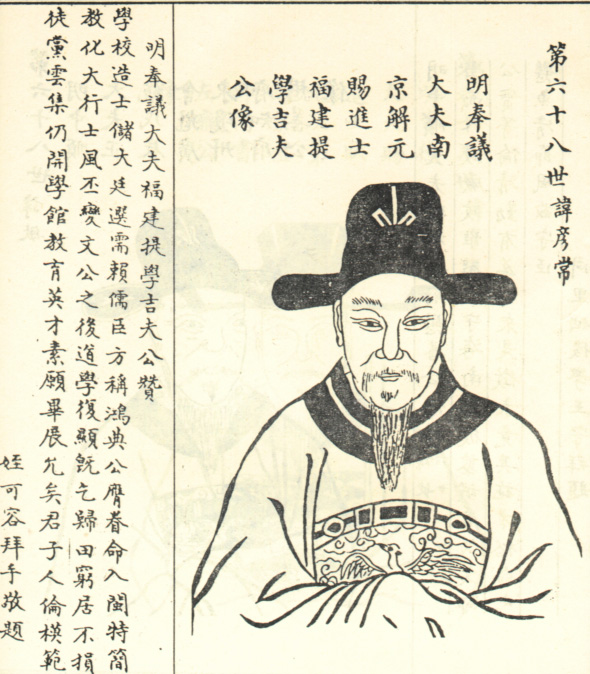 第六十八世諱彥常
明奉議
大夫南
京解元
賜進士
福建提
學吉夫
公像
明奉議大夫福建提學吉夫公贊
學校造士儲大廷選需賴儒臣方稱鴻典公膺眷命入閩特簡
教化大行士風丕變文公之後道學復顯旣乞歸田窮居不損
徒黨雲集仍開學館教育英才素願畢展允矣君子人倫模範
姪可容拜手敬題